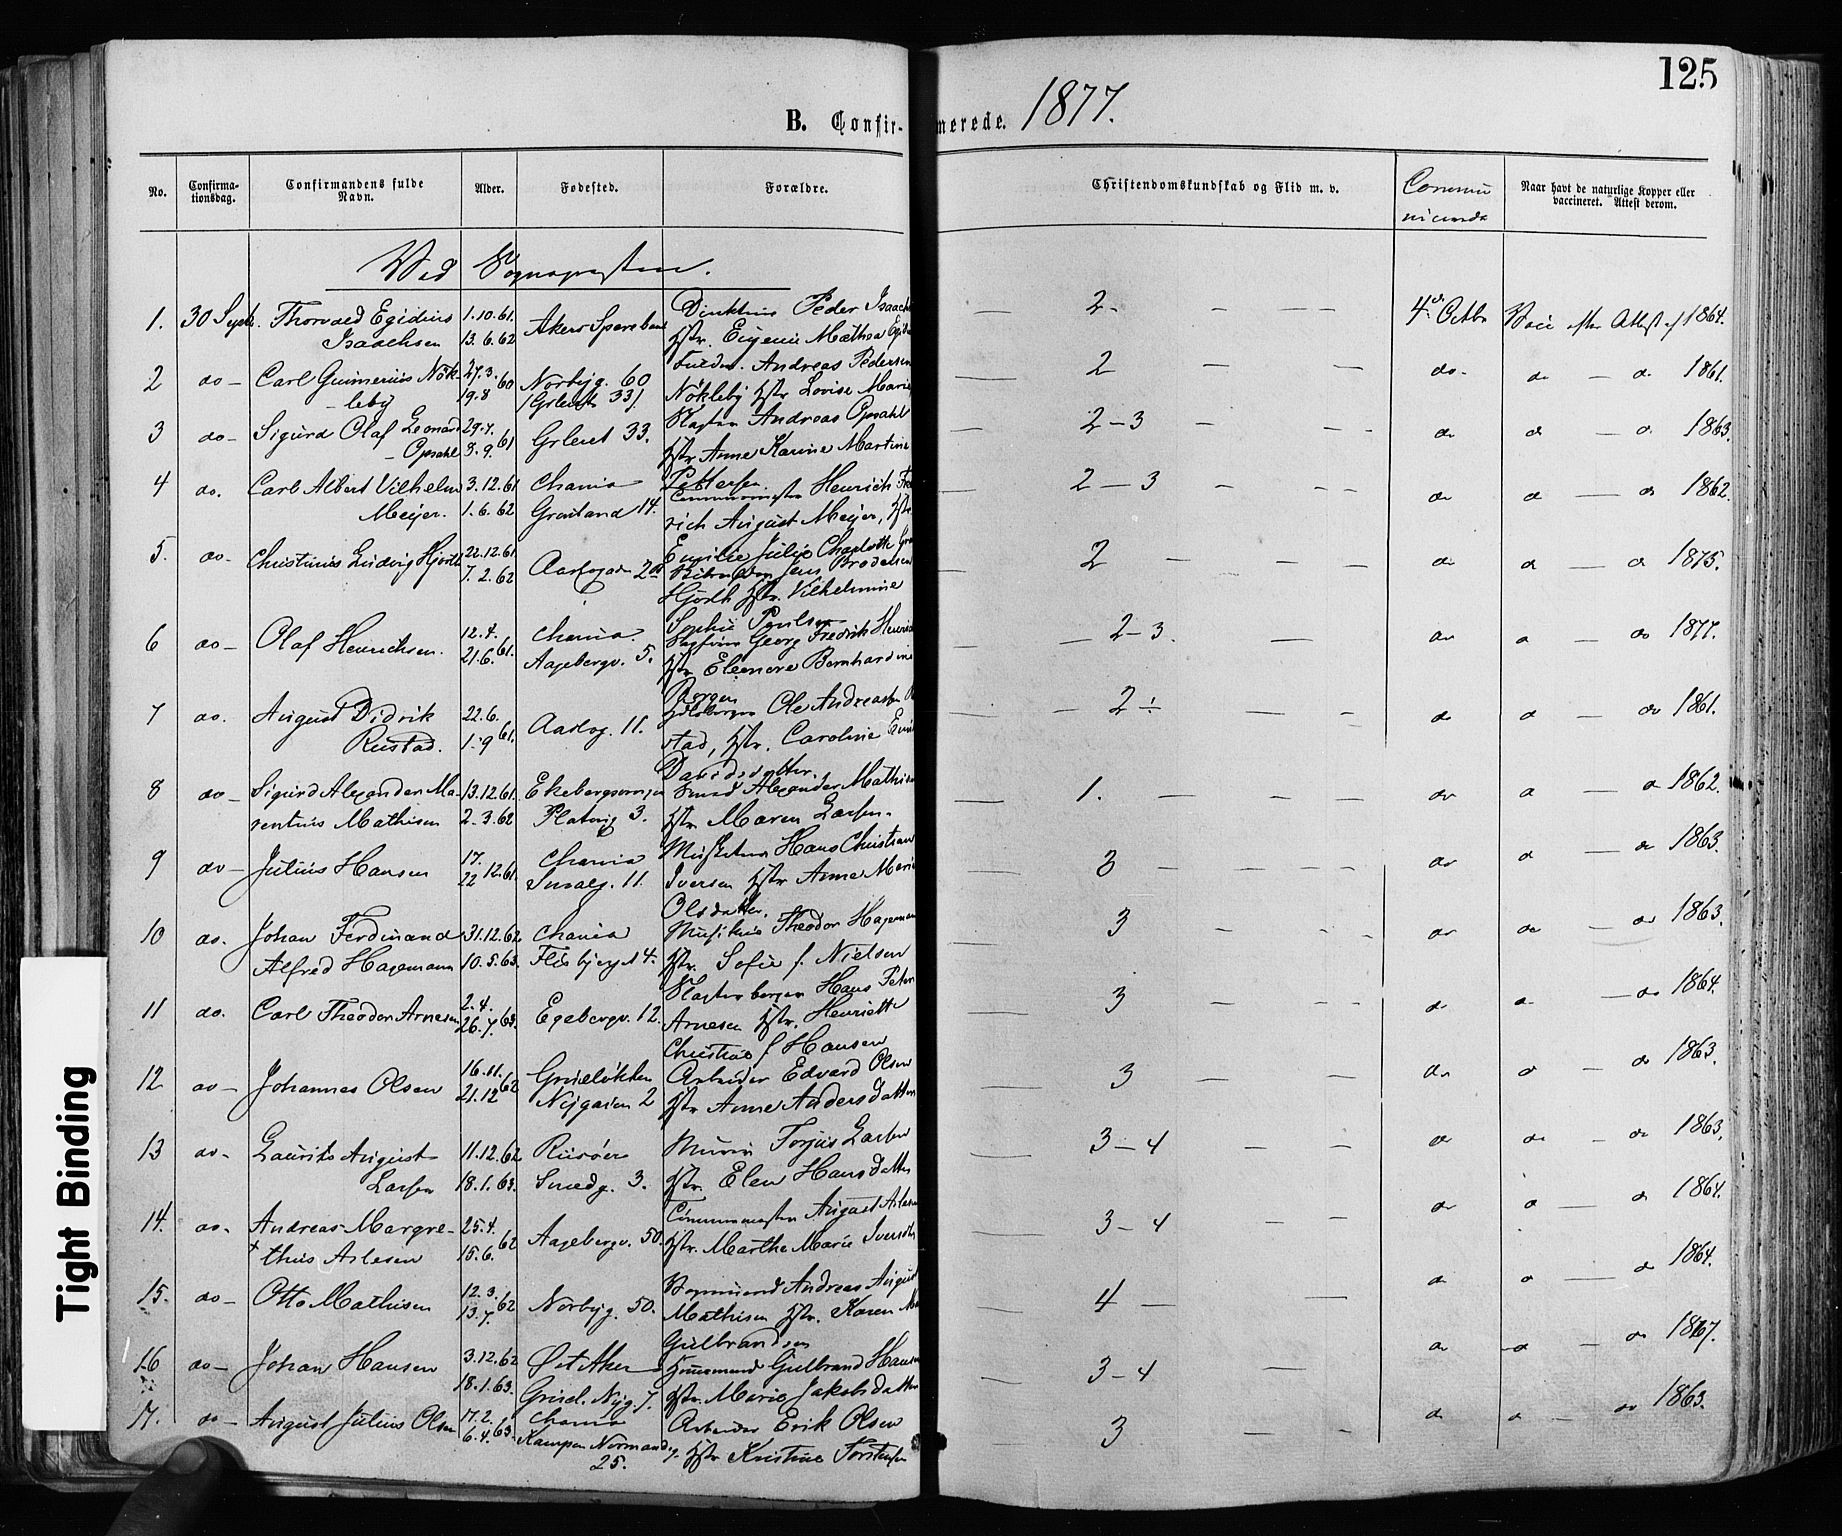 125
B. Confir- merede. 1877.
No. Confirma- Confirmandens fulde Alder. Fødested. Forældre. Christendomskundskab og Flid m. v. Commu Naar havt de naturlige Kopper eller
tionsdag. Navn. nicerede vaccineret. Attest derom.
Ved Sognepresten.
1. 30 Septr. Thorvald Egidius 1.10.61. Akers Sparebank Peder Isaachs — 2. — — — 4de Octbr Vacc. efter Attest af 1864.
Isaachsen 13.6.62 Hstr. Eugenie Mathea
2 do — Carl Gunnerius Nök- 27.3. 60 Norbyg. 60 Andreas Pedersen — 2 — — — do. do — do 1861.
- leby 19.8 (Grlerets 33) Nökleby Hstr Lovise Marie
3 do — Sigurd Olaf Leonard 29.7. 61 Grleret 33. Slagter Andreas Opsahl — 2-3 — — — do do — do 1863.
- Opsahl 8.9. Hstr Anne Karine Martine
Pettersen.
4 do. Carl Albert Vilhelm 3.12.61 Chania Henrich Fred — 2-3 — — — do do — do 1862.
Meyer. 1.6.62 Grønland 14. rich August Meyer, Hstr
Emilie Julie Charlotte
5. do — Christinus Ludvig Hjorth 22.12.61. Jens Brodersen — 2 — — — do do — do 1875.
7.2.62 Hjorth Hstr. Vilhelmine
Sophie Paulsen
6 do — Olaf Henrichsen. 12.4. 61. Chania. Georg Fredrik Henrich — 2-3. — — do do — do 1877.
21.6. Aagebergv. 5. Hstr Eleonore Bernhardine
Borgen
7 do. August Didrik 22.6. 61. Ole Andreassen — 2 ÷ — — — do do — do 1861.
Rustad. 1.9 11. stad, Hstr. Caroline
Davidsdatter.
8 do — Sigurd Alexander Ma- 13.12.61. Smed Alexander Mathisen — 1. — — — — do do — do 1862.
rentius Mathisen 2.3.62 Platvg 3. Hstr Maren Larsen.
9 do — Julius Hansen 17. 12.61. Chania Hans Christian — 3 — — — — do do — do 1863.
22 11. Iversen Hstr Anne Marie
Olsdatter.
10 do. Johan Ferdinand 31.12.62 Chania Musikus Theodor Hagemann — 3 — — — do do — do 1863.
Alfred Hagemann 10.5.63. Flisbyggt 4. Hstr. Sofie f. Nielsen
11 do. Carl Theodor Arnesen 2.4. 63. Egebergv. 12. Hans Peter — 3 — — — do do — do 1864.
26.7 Arnesen Hstr. Henriette
Christine f Hansen
12 do — Johannes Olsen 16.11. 62 Grüneløkken Arbeider Edvard Olsen — 3 — — — do do — do 1863.
21.12 Nygaden 2 Hstr Anne Andersdatter
13 do — Laurits August 11.12.62 Risøer Murer Torjus Larsen — 3-4 — — do do — do 1863.
Larsen 18.1.63. Smedg. 3. Hstr. Elen Hansdatter
14. do. Andreas Margre- 25.4. 62 Aagebergv. 50. August Aslesen 3-4 — — do do — do 1864.
thus Aslesen 15.6. Hstr. Marthe Marie
15. do — Otto Mathisen 12.3. 62 Norbyg. 50. Andreas August — 4 — — do do — do 1864.
13.7. Mathisen Hstr. Karen
Gulbrandsen
16 do — Johan Hansen 3.12.62 Øst Aker Huusmand Gulbrand Hansen — 3-4 — do do — do 1867.
18.1.63. Grünel. Nyg. 7. Hstr. Marie Jakobsdatter
17. do — August Julius Olsen 17.2. 63. Chania Arbeider Erik Olsen — 3 — — do do — do 1863.
6.4. Kampen Normandsg. Hstr Kristine
25.
Tight Binding